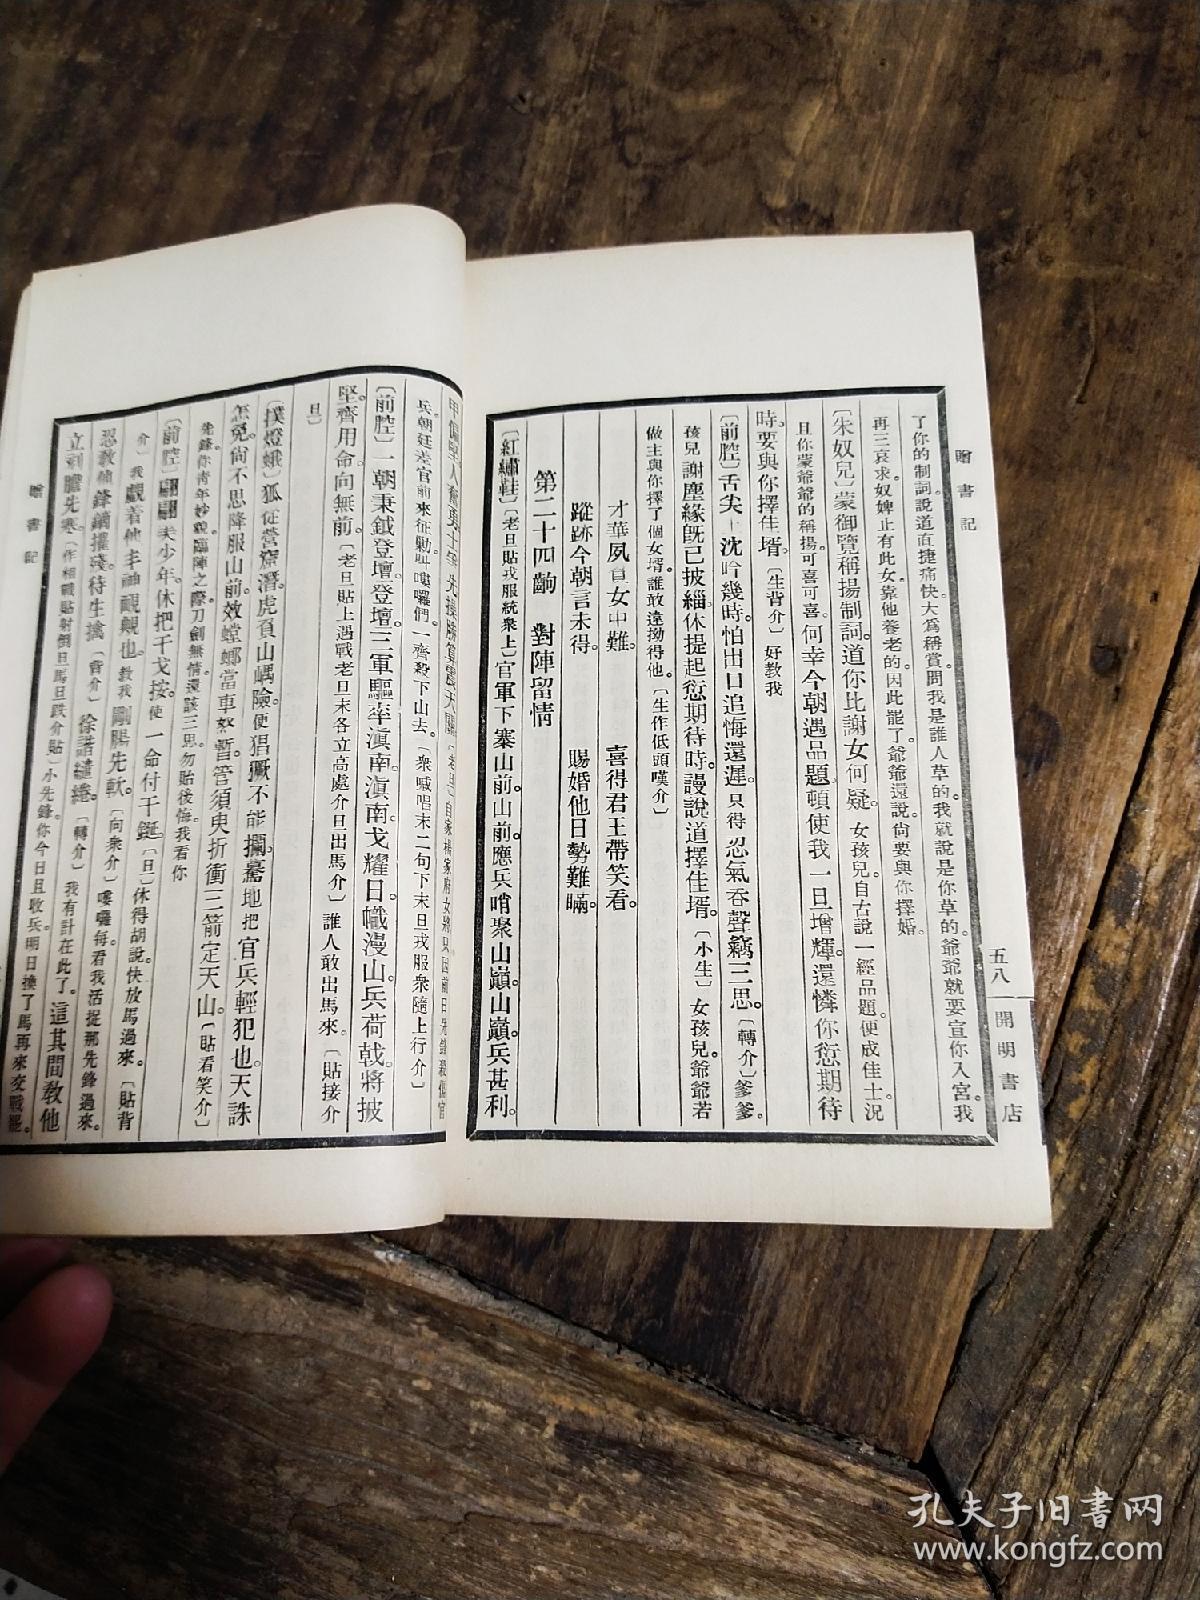 贈書記
五八
開明書店
了你的制詞說道直捷痛快大爲稱賞問我是誰人草的我就說是你草的爺爺就要宣你入宮我
再三哀求奴婢止有此女靠他養老的因此罷了爺爺還說尙要與你擇婚
〔朱奴兒〕蒙御覽稱揚制詞道你比謝女何疑女孩兒自古說一經品題便成佳士況
且你蒙爺爺的稱揚可喜可喜何幸今朝遇品題頓使我一旦增輝還憐你愆期待
時要與你擇佳壻〔生背介〕好教我
〔前腔〕舌尖上沈吟幾時怕出口追悔還遲只得忍氣吞聲竊三思〔轉介〕爹爹
孩兒謝塵緣旣已披緇休提起愆期待時謾說道擇佳壻〔小生〕女孩兒爺爺若
做主與你擇了個女壻誰敢違拗得他〔生作低頭嘆介〕
才華夙負女中難 喜得君王帶笑看
蹤跡今朝言未得 賜婚他日勢難瞞
第二十四齣 對陣留情
〔紅繡鞋〕〔老旦貼戎服統衆上〕官軍下寨山前山前應兵哨聚山巓山巓兵甚利
兵朝廷差官前來征勦叫嘍囉們一齊殺下山去〔衆喊唱末二句下末旦戎服衆隨上行介〕
〔前腔〕一朝秉鉞登壇登壇三軍驅率滇南滇南戈耀日幟漫山兵荷戟將披
堅齊用命向無前〔老旦貼上遇戰老旦末各立高處介旦出馬介〕誰人敢出馬來〔貼接介
旦〕
〔撲燈蛾〕狐從營窟潛虎負山嵎險便猖獗不能攔驀地把官兵輕犯也天誅
怎免尙不思降服山前效螳螂當車怒暫管須臾折衝三箭定天山〔貼看笑介〕
先鋒你靑年妙貌臨陣之際刀劍無情還該三思勿貽後悔我看你
〔前腔〕翩翩美少年休把干戈按使一命付干鋋〔旦〕休得胡說快放馬過來〔貼背
介〕我覰着他丰神靦覥也教我剛腸先軟〔向衆介〕嘍囉每看我活捉那先鋒過來
忍教他鋒鏑摧殘待生擒〔背介〕徐諧繾綣〔轉介〕我有計在此了這其間敎他
立刻膽先寒〔作相戰貼射倒旦馬旦跌介貼〕小先鋒你今日且收兵明日換了馬再來交戰罷
贈書記
孔夫子旧书网
www.kongfz.com